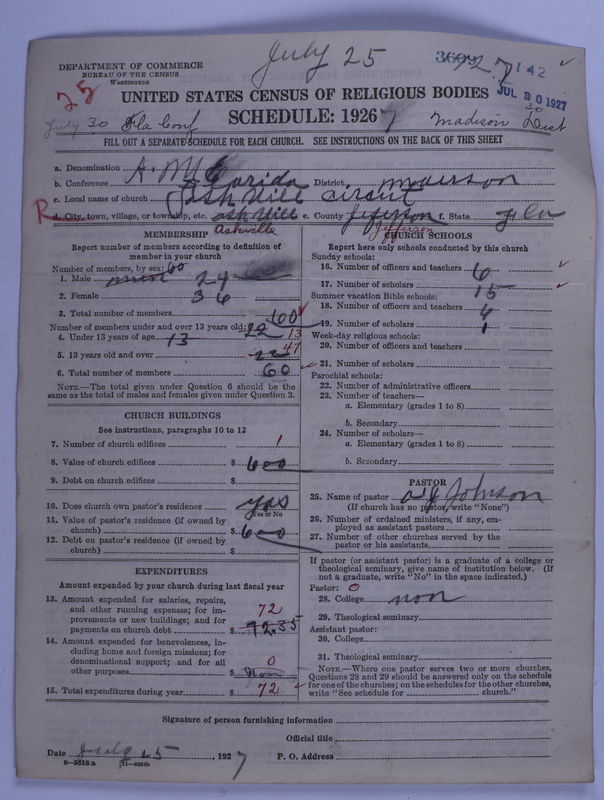 July 25
DEPARTMENT OF COMMERCE
BUREAU OF THE CENSUS
WASHINGTON
142
JUL 30 1927
28
UNITED STATES CENSUS OF RELIGIOUS BODIES
SCHEDULE: 1926 7
July 30 Fla Conf
Madison Dist
30
FILL OUT A SEPARATE SCHEDULE FOR EACH CHURCH. SEE INSTRUCTIONS ON THE BACK OF THIS SHEET
a. Denomination A. M. E
b. Conference Florida District
c. Local name of church Ash Vill Circut
R d. City, town, village, or township, etc. Ash Vill e. County Jefferson f. State Fla
Ashville Jefferson
MEMBERSHIP
Report number of members according to definition of member in your church
Number of members, by sex: 60
1. Male 24
2. Female 36
3. Total number of members 60
Number of members under and over 13 years old:
4. Under 13 years of age 13 13
5. 13 years old and over 47
6. Total number of members 60
NOTE.—The total given under Question 6 should be the same as the total of males and females given under Question 3.
CHURCH BUILDINGS
See instructions, paragraphs 10 to 12
7. Number of church edifices 1
8. Value of church edifices $ 600
9. Debt on church edifices $
10. Does church own pastor's residence yas
Yes or No
11. Value of pastor's residence (if owned by church) $ 600
12. Debt on pastor's residence (if owned by church) $
EXPENDITURES
Amount expended by your church during last fiscal year
13. Amount expended for salaries, repairs, and other running expenses; for improvements or new buildings; and for payments on church debt $ 72 72.35
14. Amount expended for benevolences, including home and foreign missions; for denominational support; and for all other purposes $ 0
15. Total expenditures during year $ 72
CHURCH SCHOOLS
Report here only schools conducted by this church
Sunday schools:
16. Number of officers and teachers 6
17. Number of scholars 15
Summer vacation Bible schools:
18. Number of officers and teachers 4
19. Number of scholars 1
Week-day religious schools:
20. Number of officers and teachers
21. Number of scholars
Parochial schools:
22. Number of administrative officers
23. Number of teachers—
a. Elementary (grades 1 to 8)
b. Secondary
24. Number of scholars—
a. Elementary (grades 1 to 8)
b. Secondary
PASTOR
25. Name of pastor Johnson
(If church has no pastor, write "None")
26. Number of ordained ministers, if any, employed as assistant pastors
27. Number of other churches served by the pastor or his assistants
If pastor (or assistant pastor) is a graduate of a college or theological seminary, give name of institution below. (If not a graduate, write "No" in the space indicated.)
Pastor: 0
28. College non
29. Theological seminary
Assistant pastor:
30. College
31. Theological seminary
NOTE.—Where one pastor serves two or more churches, Questions 28 and 29 should be answered only on the schedule for one of the churches; on the schedules for the other churches, write "See schedule for church."
Signature of person furnishing information
Official title
Date July 25, 1927 P. O. Address
8—5518 a